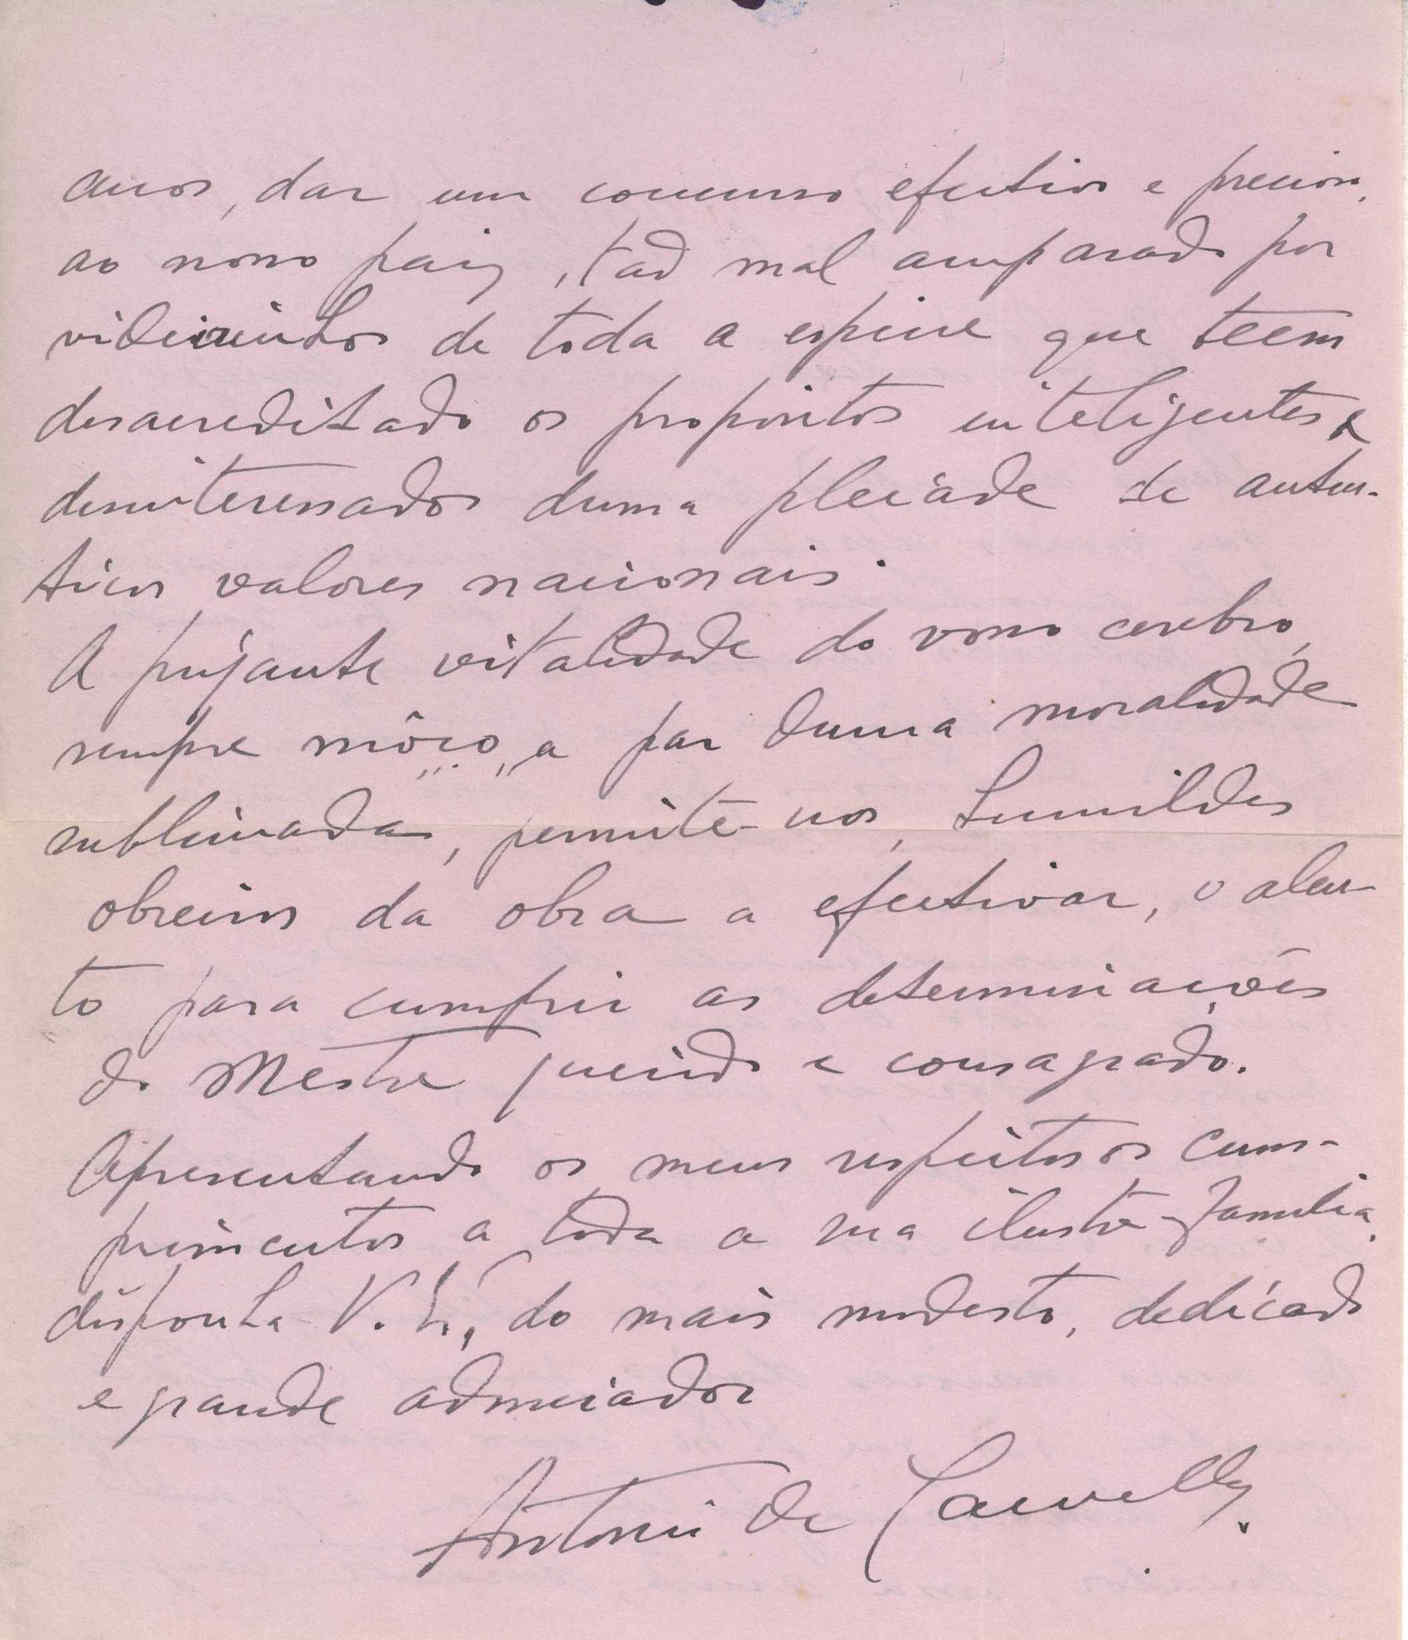 anos, dar um concurso efectivo e precioso,
ao nosso paiz, tão mal amparado por
videirinhos de toda a especie que teem
desacreditado os propositos inteligentes e
desinteressados duma pleiade de auten-
ticos valores nacionais.
A pujante vitalidade do vosso cerebro,
sempre môço, a par duma moralidade
sublimada, permite-nos, humildes
obreiros da obra a efectivar, o alen-
to para cumprir as determinações
do Mestre querido e consagrado.
Apresentando os meus respeitosos cum-
primentos a toda a sua ilustre familia,
disponha V. Ex.ª, do mais modesto, dedicado
e grande admirador
Antonio de